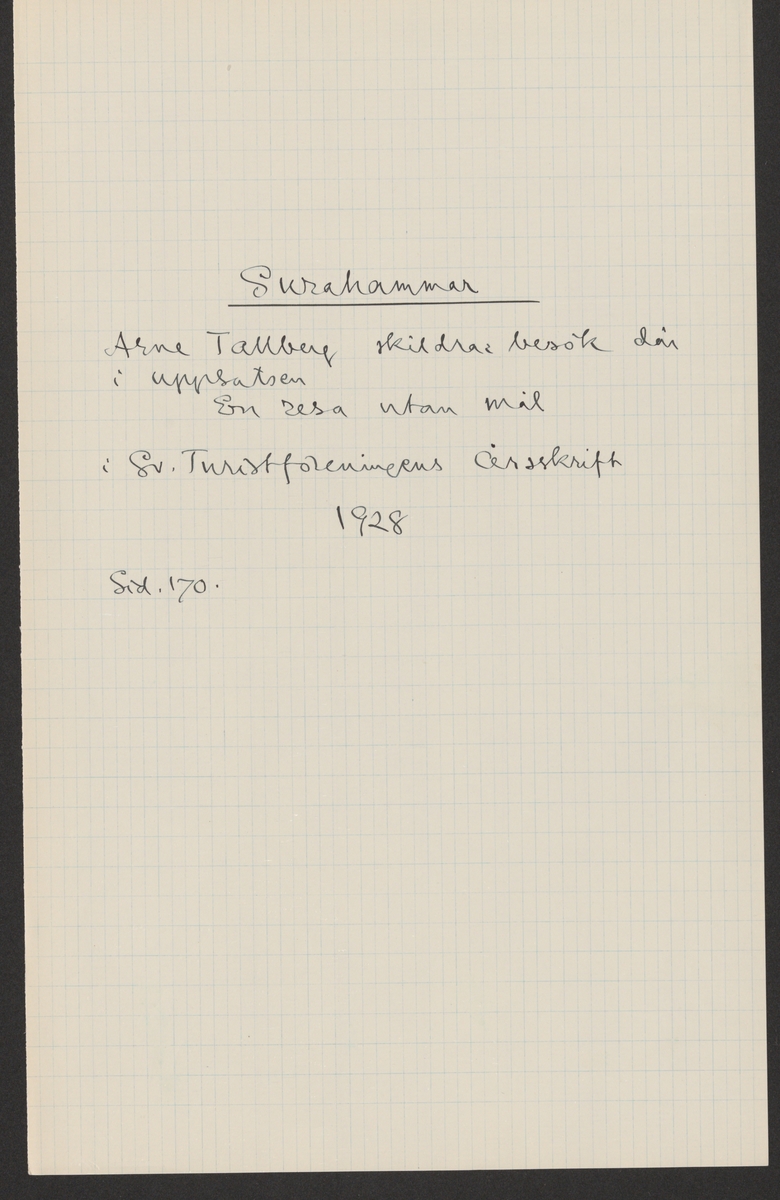 Surahammar
Arne Tallberg skildrar besök där
i uppsatsen
En resa utan mål
i Sv. Turistföreningens Årsskrift
1928
Sid. 170.